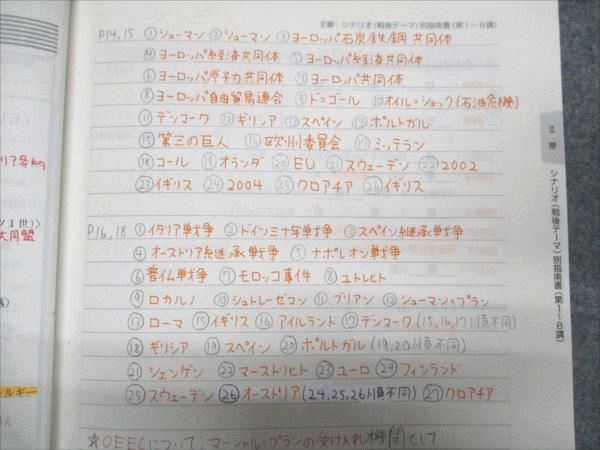 II章 シナリオ(戦後テーマ)別指南書(第1~8講)
P14,15 ①シューマン ②シューマン ③ヨーロッパ石炭鉄鋼共同体
④ヨーロッパ経済共同体 ⑤ヨーロッパ経済共同体
⑥ヨーロッパ原子力共同体 ⑦ヨーロッパ共同体
⑧ヨーロッパ自由貿易連合 ⑨ド=ゴール ⑩オイル=ショック(石油危機)
⑪デンマーク ⑫ギリシア ⑬スペイン ⑭ポルトガル
⑮第三の巨人 ⑯欧州委員会 ⑰ミッテラン
⑱コール ⑲オランダ ⑳EU ㉑スウェーデン ㉒2002
㉓イギリス ㉔2004 ㉕クロアチア ㉖イギリス
P16,18 ①イタリア戦争 ②ドイツ三十年戦争 ③スペイン継承戦争
④オーストリア継承戦争 ⑤ナポレオン戦争
⑥普仏戦争 ⑦モロッコ事件 ⑧ユトレヒト
⑨ロカルノ ⑩シュトレーゼマン ⑪ブリアン ⑫シューマン=プラン
⑬ローマ ⑮イギリス ⑯アイルランド ⑰デンマーク(15,16,17順不同)
⑱ギリシア ⑲スペイン ⑳ポルトガル(19,20順不同)
㉑シェンゲン ㉒マーストリヒト ㉓ユーロ ㉔フィンランド
㉕スウェーデン ㉖オーストリア(24,25,26順不同) ㉗クロアチア
☆OEECについて:マーシャル=プランの受け入れ機関として
II
章
シナリオ(戦後テーマ)別指南書(第1~8講)
リア条約
ツ1世)
大同盟
ルギー